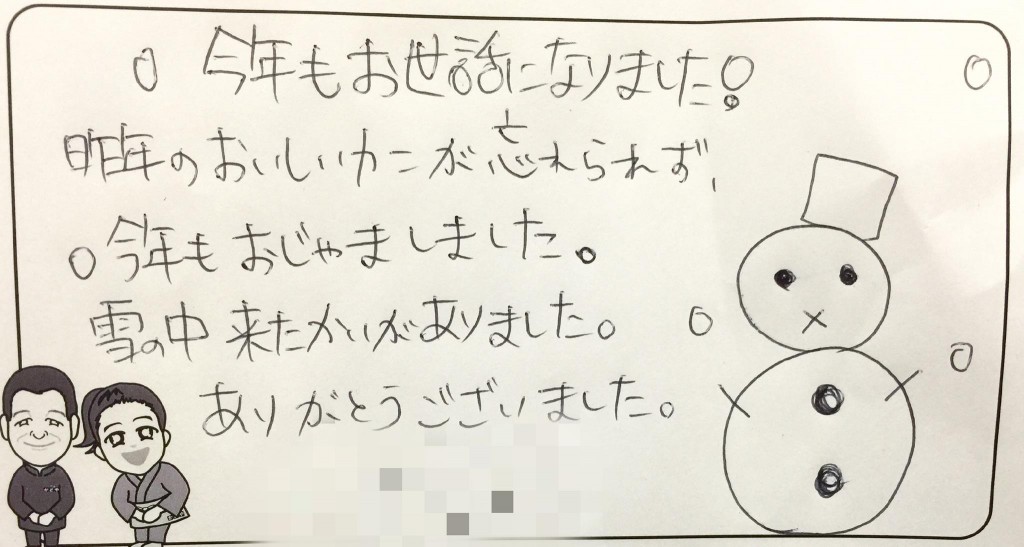 今年もお世話になりました!
昨年のおいしいカニが忘れられず、
今年もおじゃましましました。
雪の中来たかいがありました。
ありがとうございました。